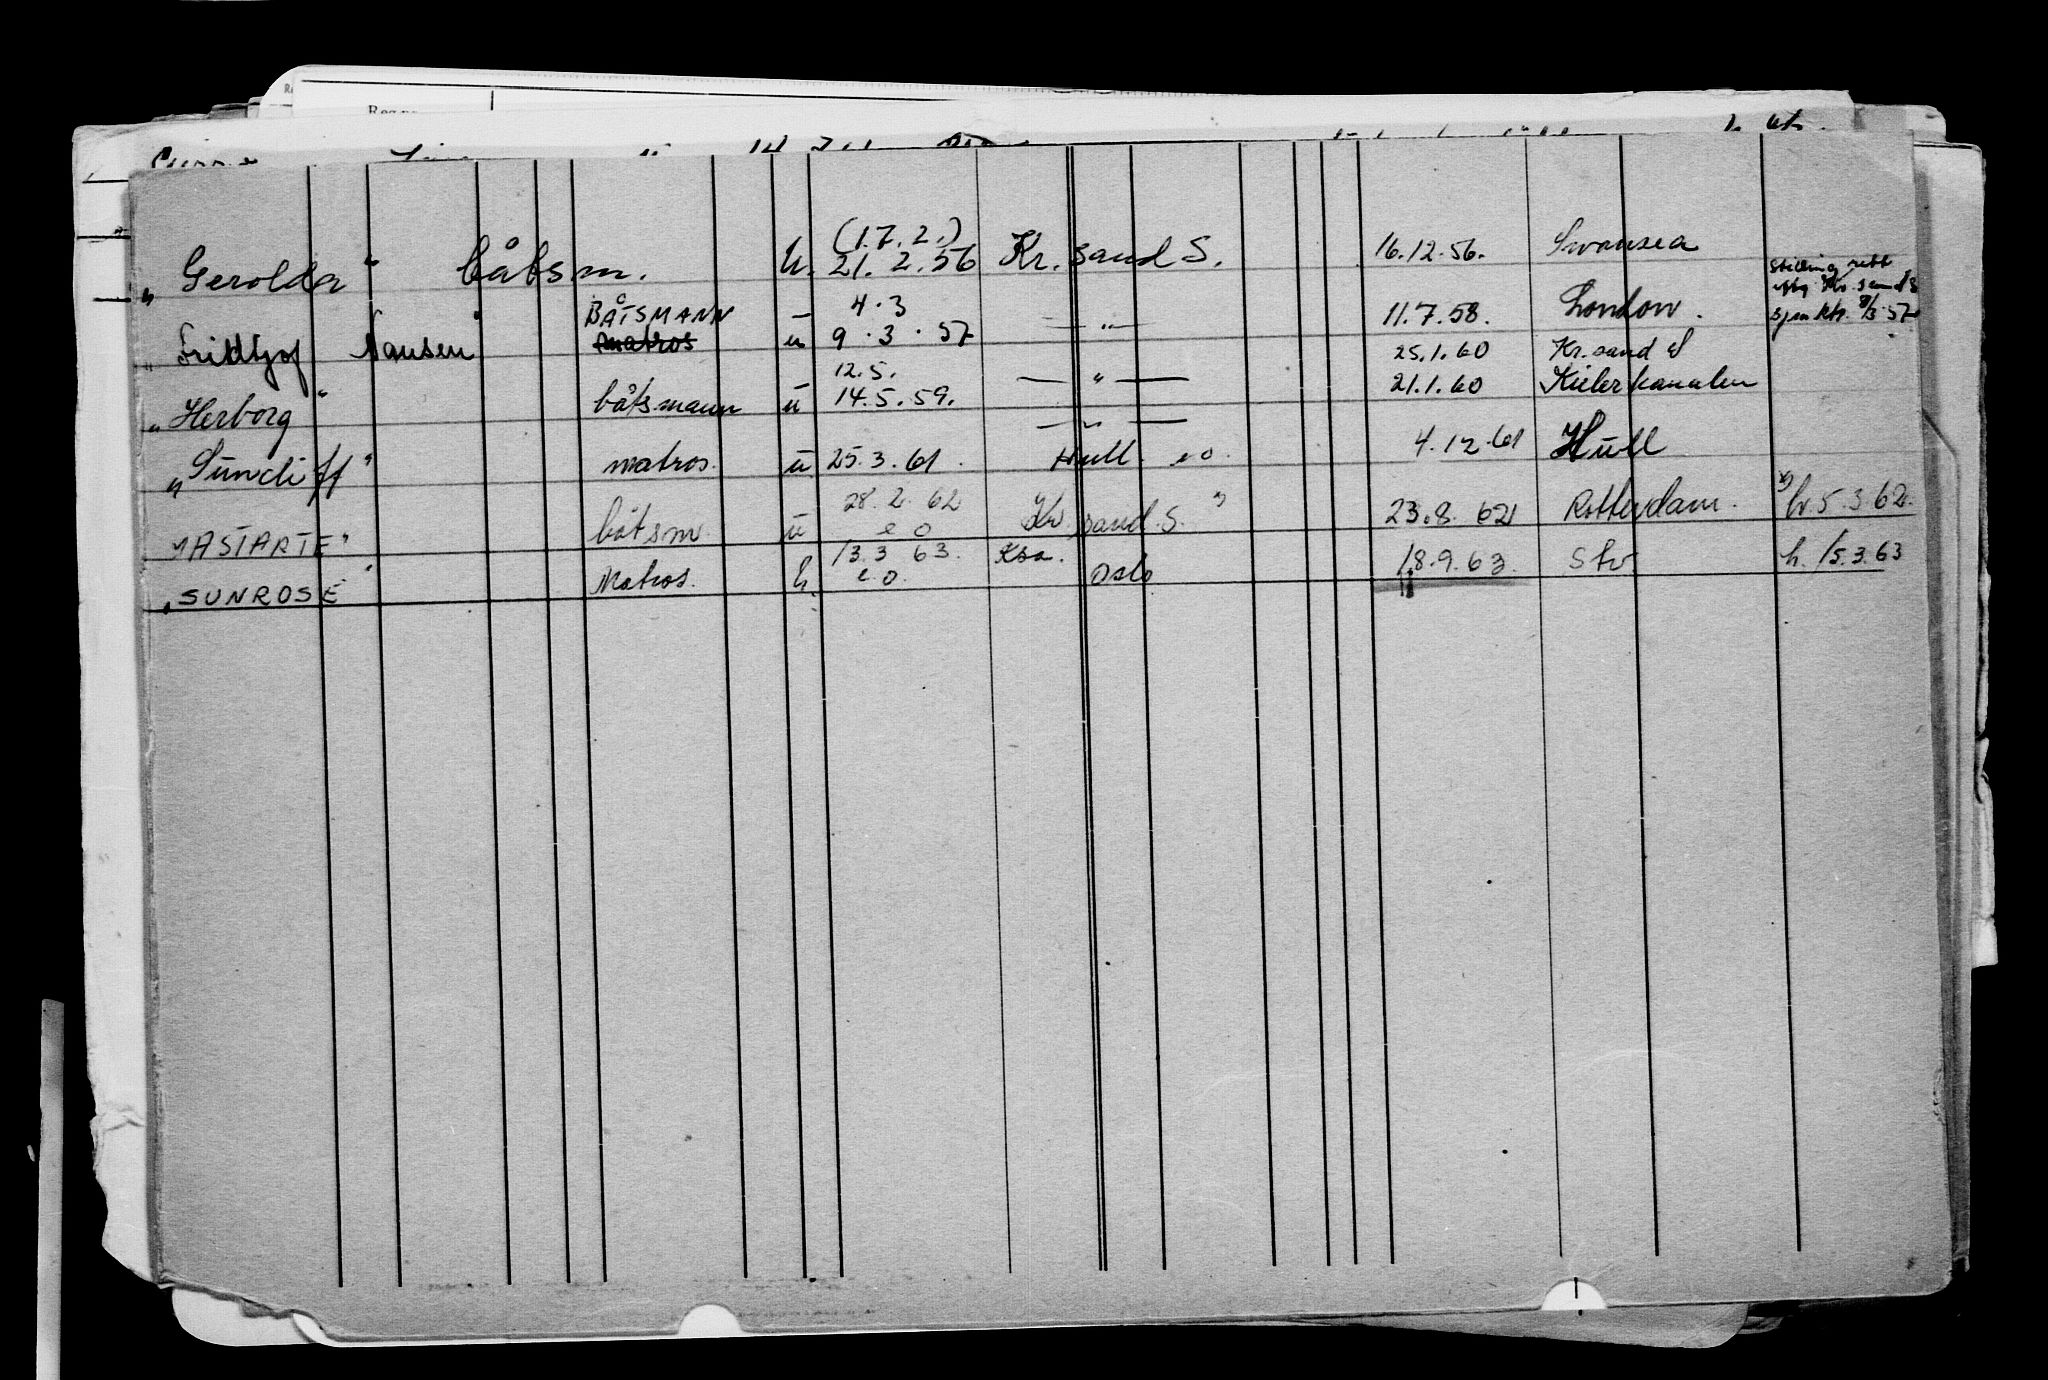 (1.7.2.)
„Gerolda" båtsm. u. 21.2.56 Kr. sand S. 16.12.56. Swansea
Stilling rett
Kr. sand S
BÅTSMANN 4.3
„Fridtjof Nansen" matros u 9.3.57 — " — 11.7.58. London. 8/3-57
12.5. 25.1.60 Kr. sand S
„Herborg" båtsmann u 14.5.59. — " — 21.1.60 Kielerkanalen
— " —
„Suncliff" matros. u 25.3.61. Hull eo. 4.12.61 Hull
28.2.62
"ASTARTE" båtsm. u eo Kr. sand. S. 23.8.62 Rotterdam. 5.3.62.
13.3.63. Ksa.
„SUNROSE" Matros. h. e.o. Oslo 18.9.63. Stv h. 15.3.63